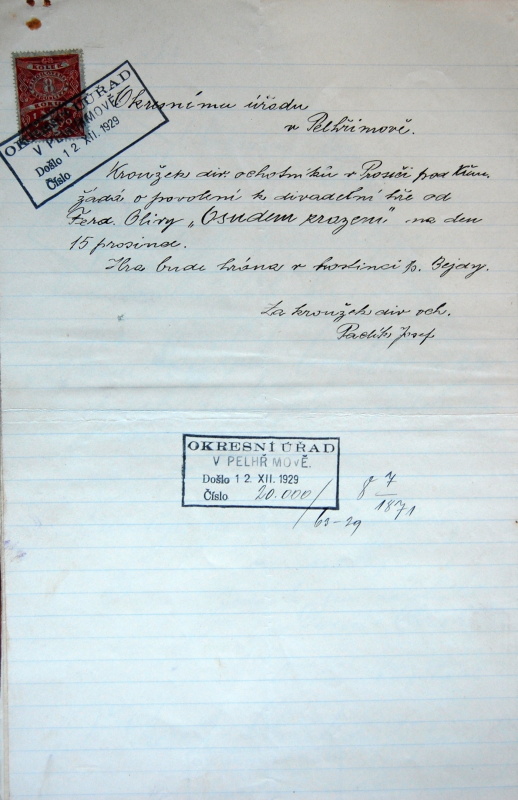 KOLEK
8
OKRESNÍ ÚŘAD
V PELHŘIMOVĚ.
Došlo 12. XII. 1929
Číslo
Okresnímu úřadu
v Pelhřimově.
Kroužek div. ochotníků v Proseči pod Křem.
žádá o povolení k divadelní hře od
Ferd. Olivy „Osudem sražení" na den
15 prosince.
Hra bude hrána v hostinci p. Bejdy.
Za kroužek div. och.
Josef
OKRESNÍ ÚŘAD
V PELHŘIMOVĚ.
Došlo 12. XII. 1929
Číslo 20.000/
63-29
8 7
1871